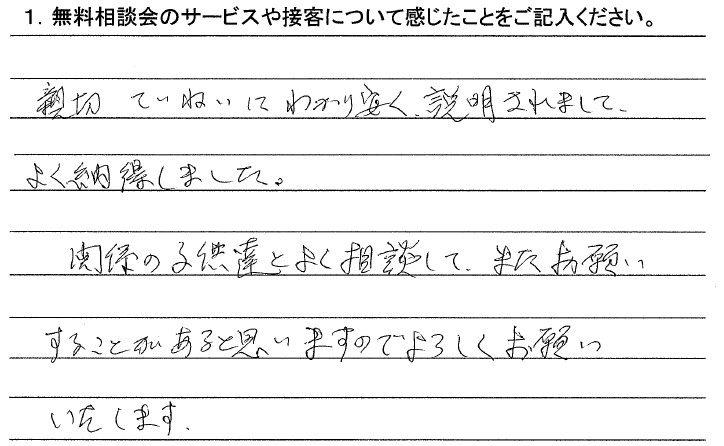 1. 無料相談会のサービスや接客について感じたことをご記入ください。
親切 ていねいに わかり安く、説明されまして、
よく納得しました。
関係の子供達とよく相談して、またお願い
することがあると思いますのでよろしくお願い
いたします、